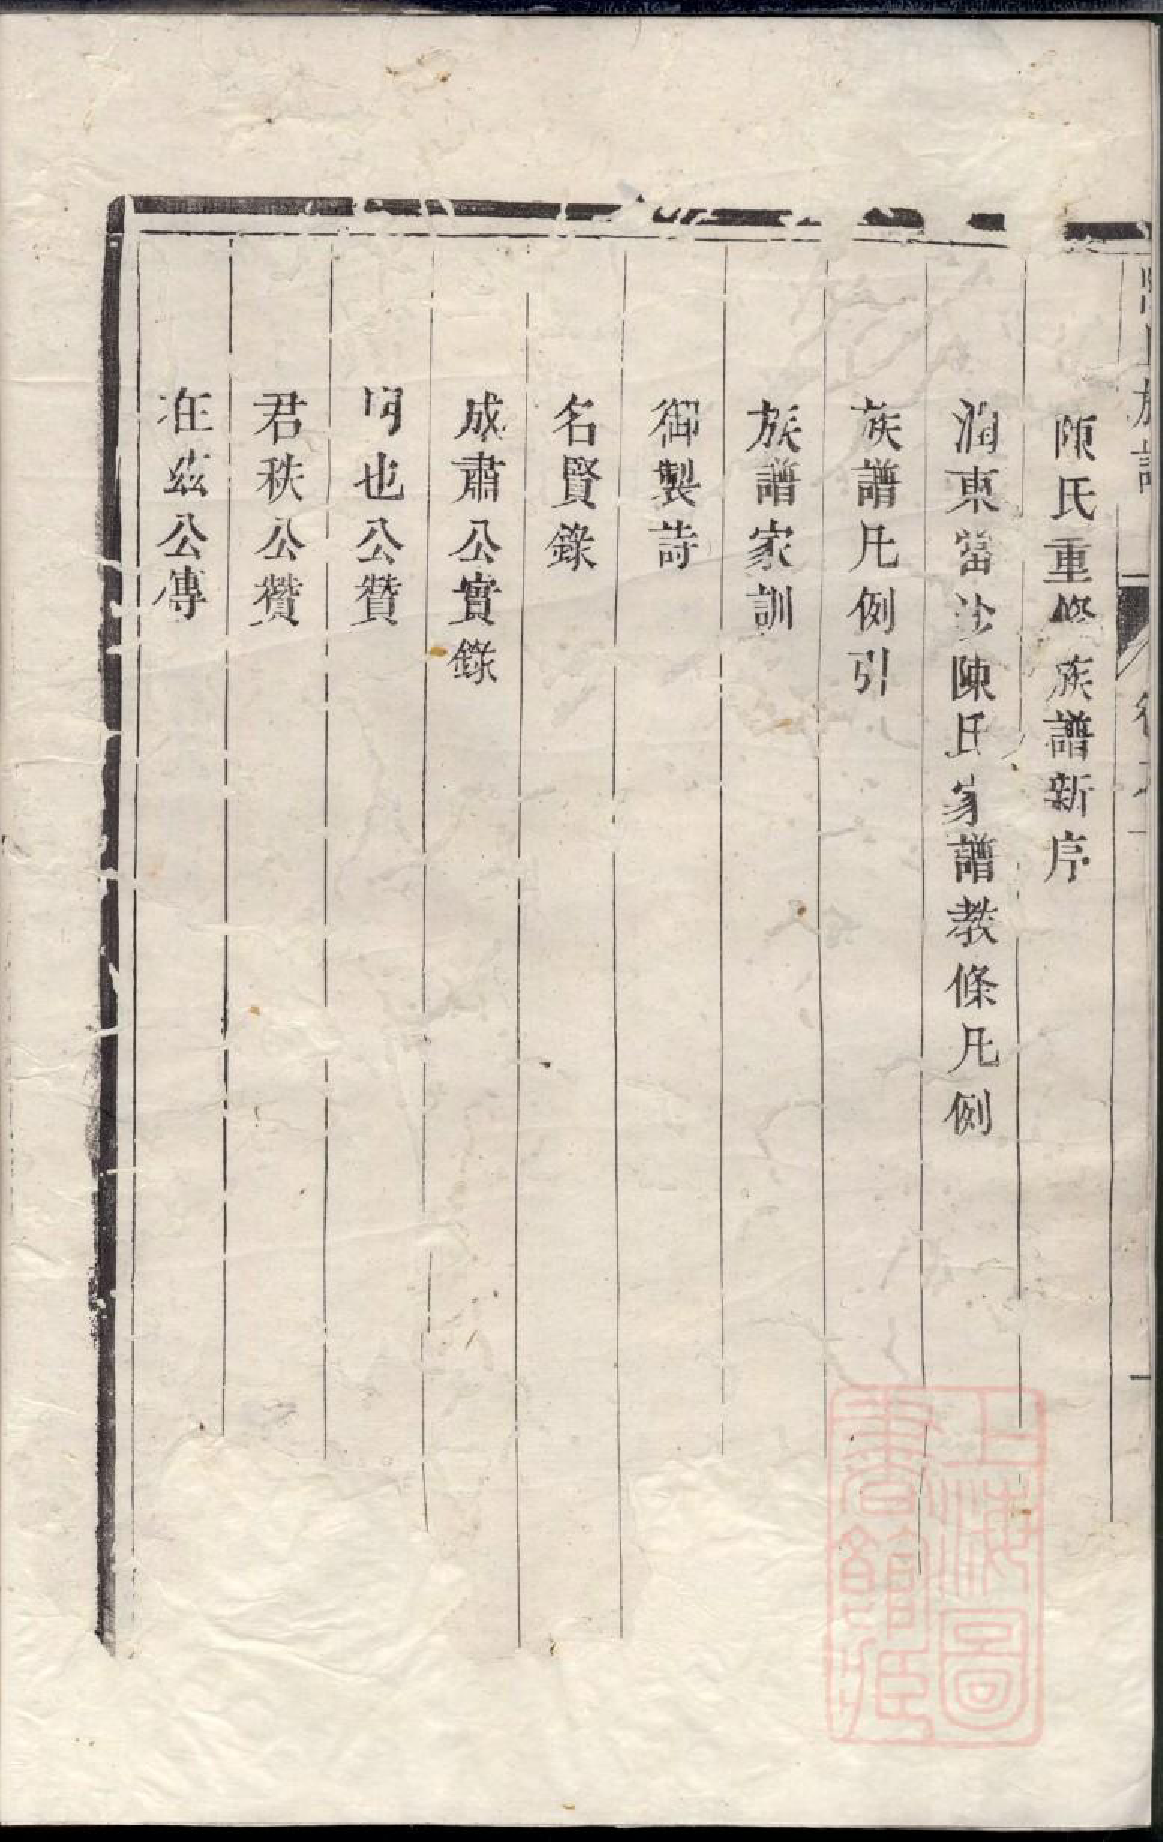 陳氏族譜
陳氏重修族譜新序
潤東當沙陳氏家譜教條凡例
族譜凡例引
族譜家訓
御製詩
名賢錄
成肅公實錄
可也公贊
君秩公贊
在茲公傳
上海圖
書館藏